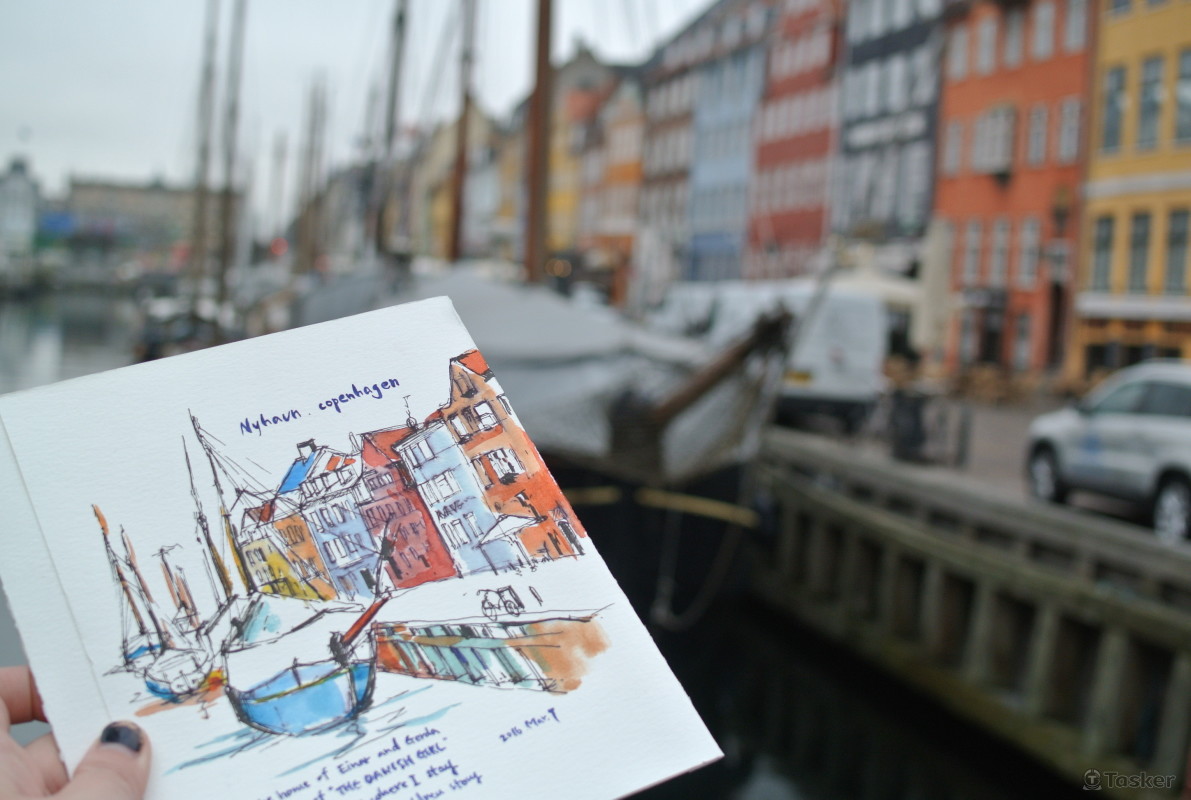 Nyhavn . copenhagen
2016 Mar.
home of Einar and Gerda
of "THE DANISH GIRL"
where I stay
story
Tasker